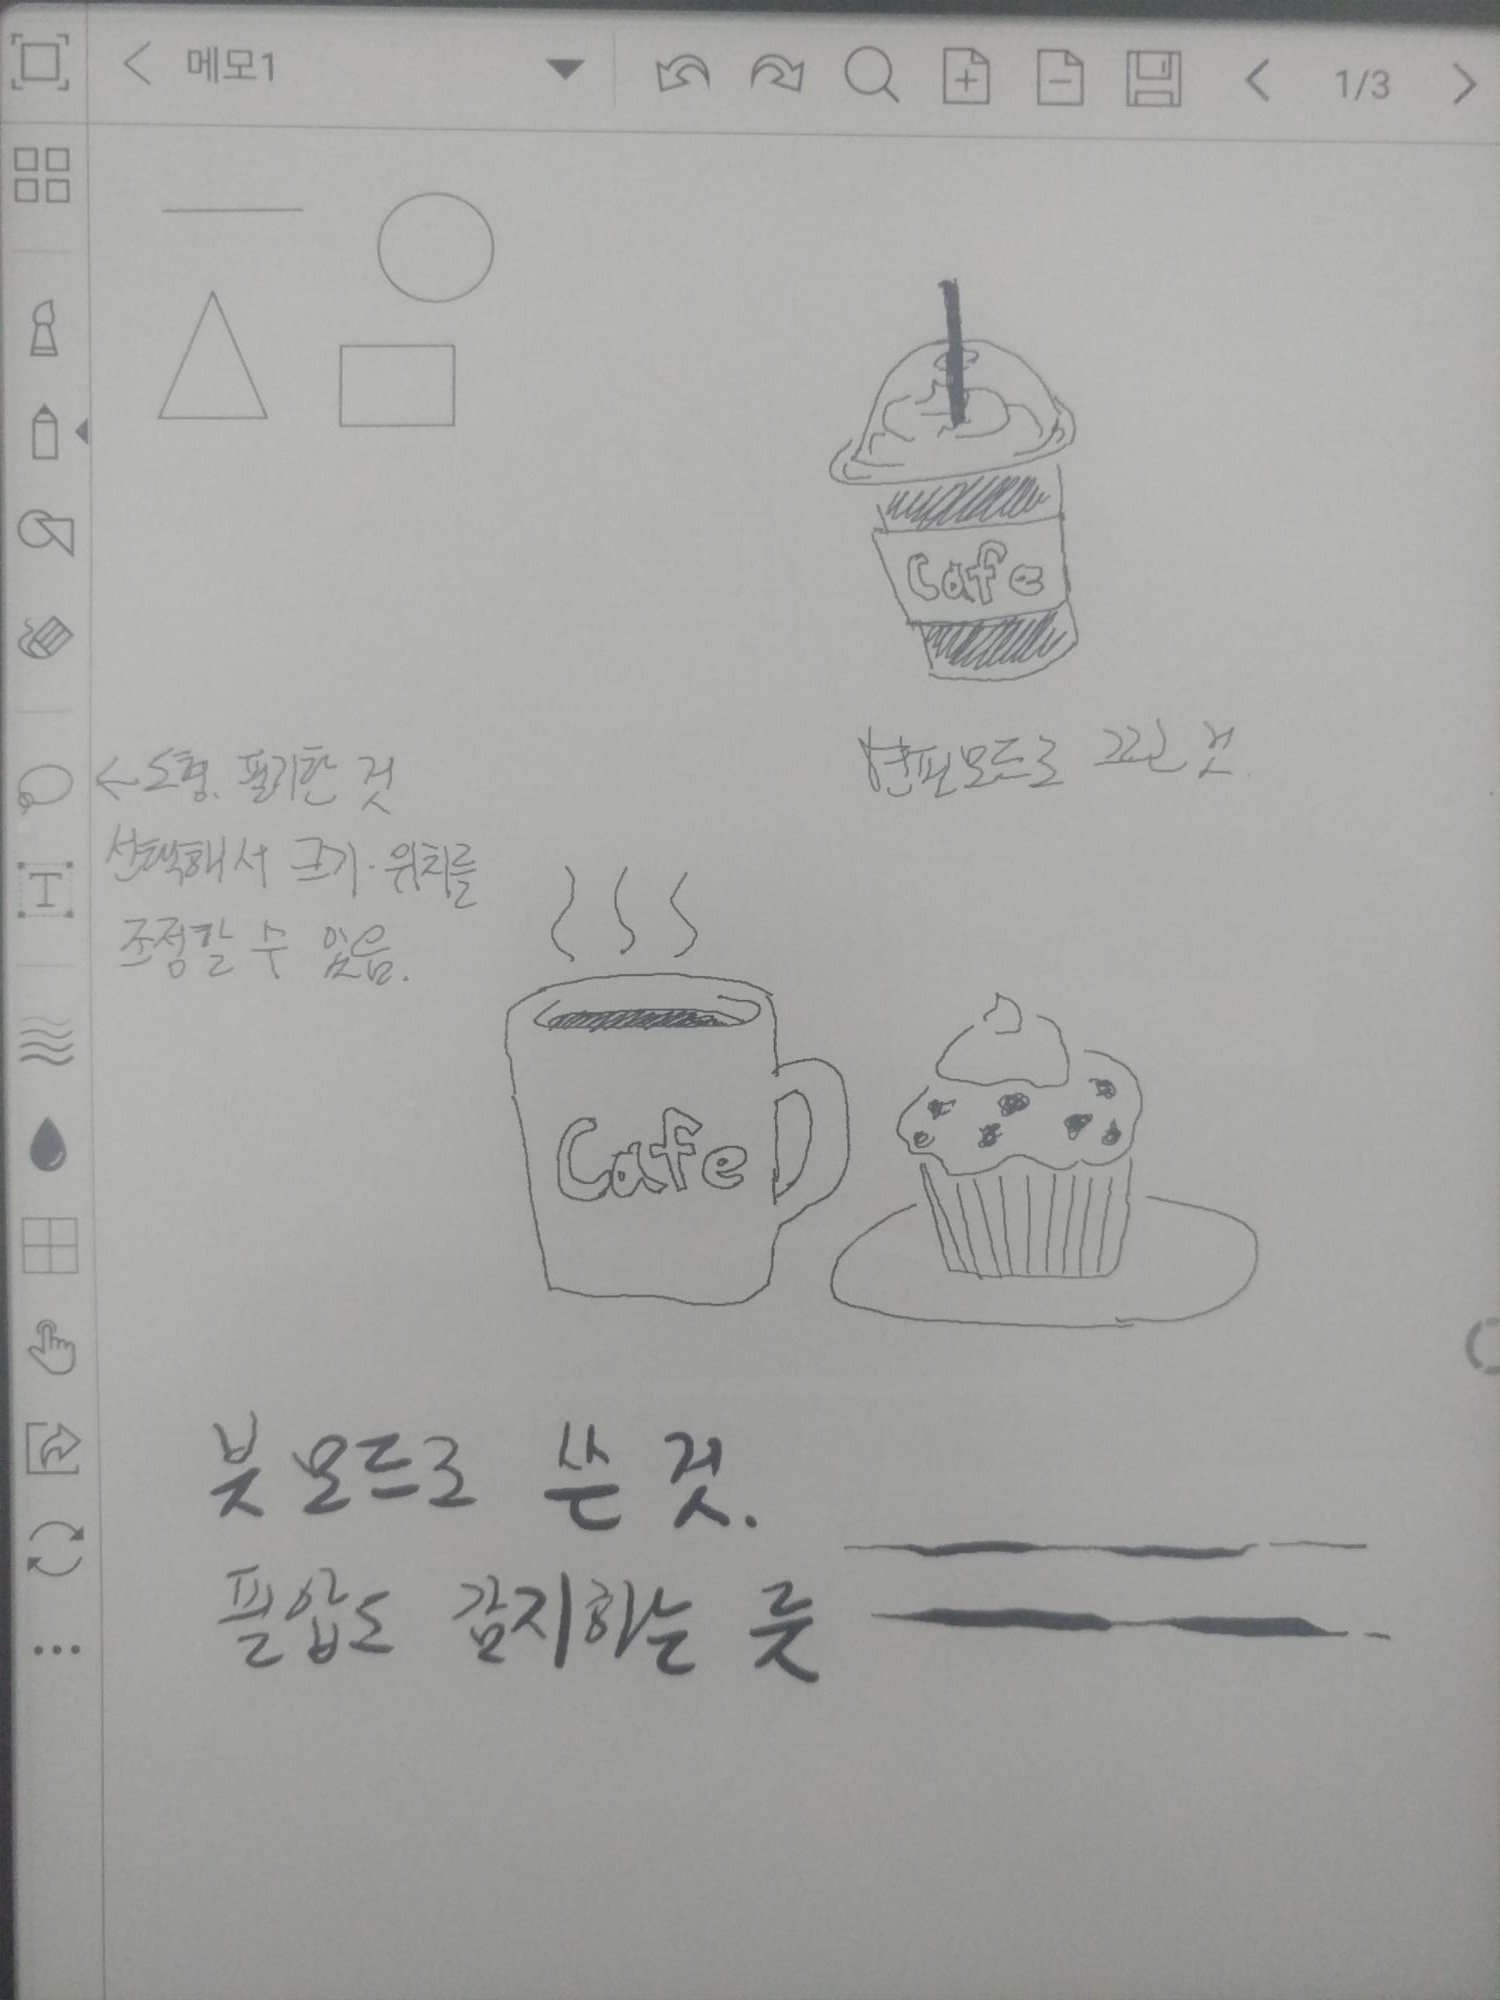 메모1
1/3
Cafe
연필모드로 그린 것.
←도형. 필기한 것
선택해서 크기·위치를
조정할 수 있음.
T
Cafe
붓 모드로 쓴 것.
필압도 감지하는 듯